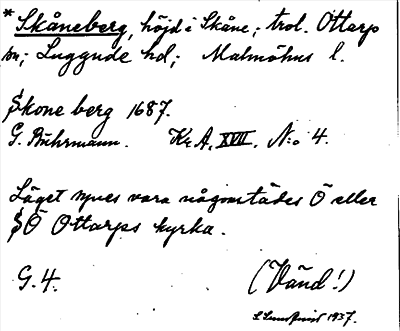 * Skåneberg, höjd i Skåne; trol. Ottarp
sn; Luggude hd; Malmöhus l.
Skone berg 1687.
G. Buhrmann. Kr A. XVII. N:o 4.
Läget synes vara någonstädes Ö eller
SÖ Ottarps kyrka.
G. 4. (Vänd!)
S Lundquist 1937.